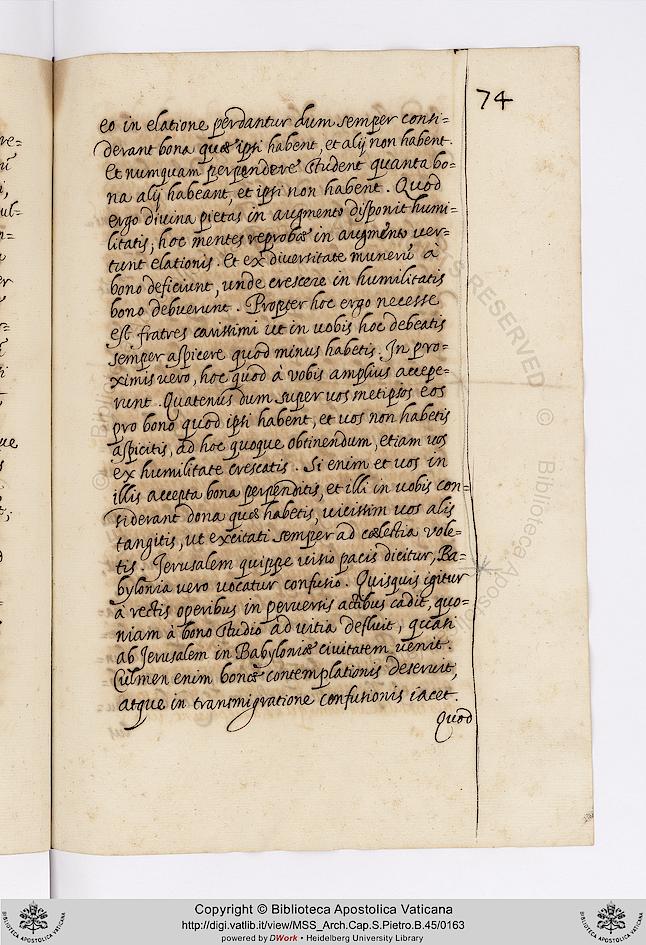 74
eo in elatione perdantur dum semper consi=
derant bona quæ ipsi habent, et alij non habent.
Et numquam perpendere student quanta bo=
na alij habeant, et ipsi non habent. Quod
ergo divina pietas in augmento disponit humi=
litatis, hoc mentes reprobæ in augmento ver=
tunt elationis. Et ex diversitate munerū à
bono deficiunt, unde crescere in humilitatis
bono debuerunt. Propter hoc ergo necesse
est fratres carissimi ut in uobis hoc debeatis
semper aspicere quod minus habetis. In pro=
ximis uero, hoc quod à vobis amplius accepe=
runt. Quatenus dum super vos metipsos eos
pro bono quod ipsi habent, et vos non habetis
aspicitis, ad hoc quoque obtinendum, etiam vos
ex humilitate crescatis. Si enim et vos in
illis accepta bona perpenditis, et illi in vobis con=
siderant dona quæ habetis, vicissim vos alis
tangitis, ut excitati semper ad cœlestia vole=
tis. Jerusalem quippe visio pacis dicitur, Ba=
bylonia vero vocatur confusio. Quisquis igitur
à rectis operibus in perversis actibus cadit, quo=
niam à bono studio ad vitia defluit, quasi
ab Jerusalem in Babyloniæ civitatem venit.
Culmen enim bonæ contemplationis deseruit,
atque in transmigratione confusionis iacet.
Quod
Copyright © Biblioteca Apostolica Vaticana
http://digi.vatlib.it/view/MSS_Arch.Cap.S.Pietro.B.45/0163
powered by DWork • Heidelberg University Library